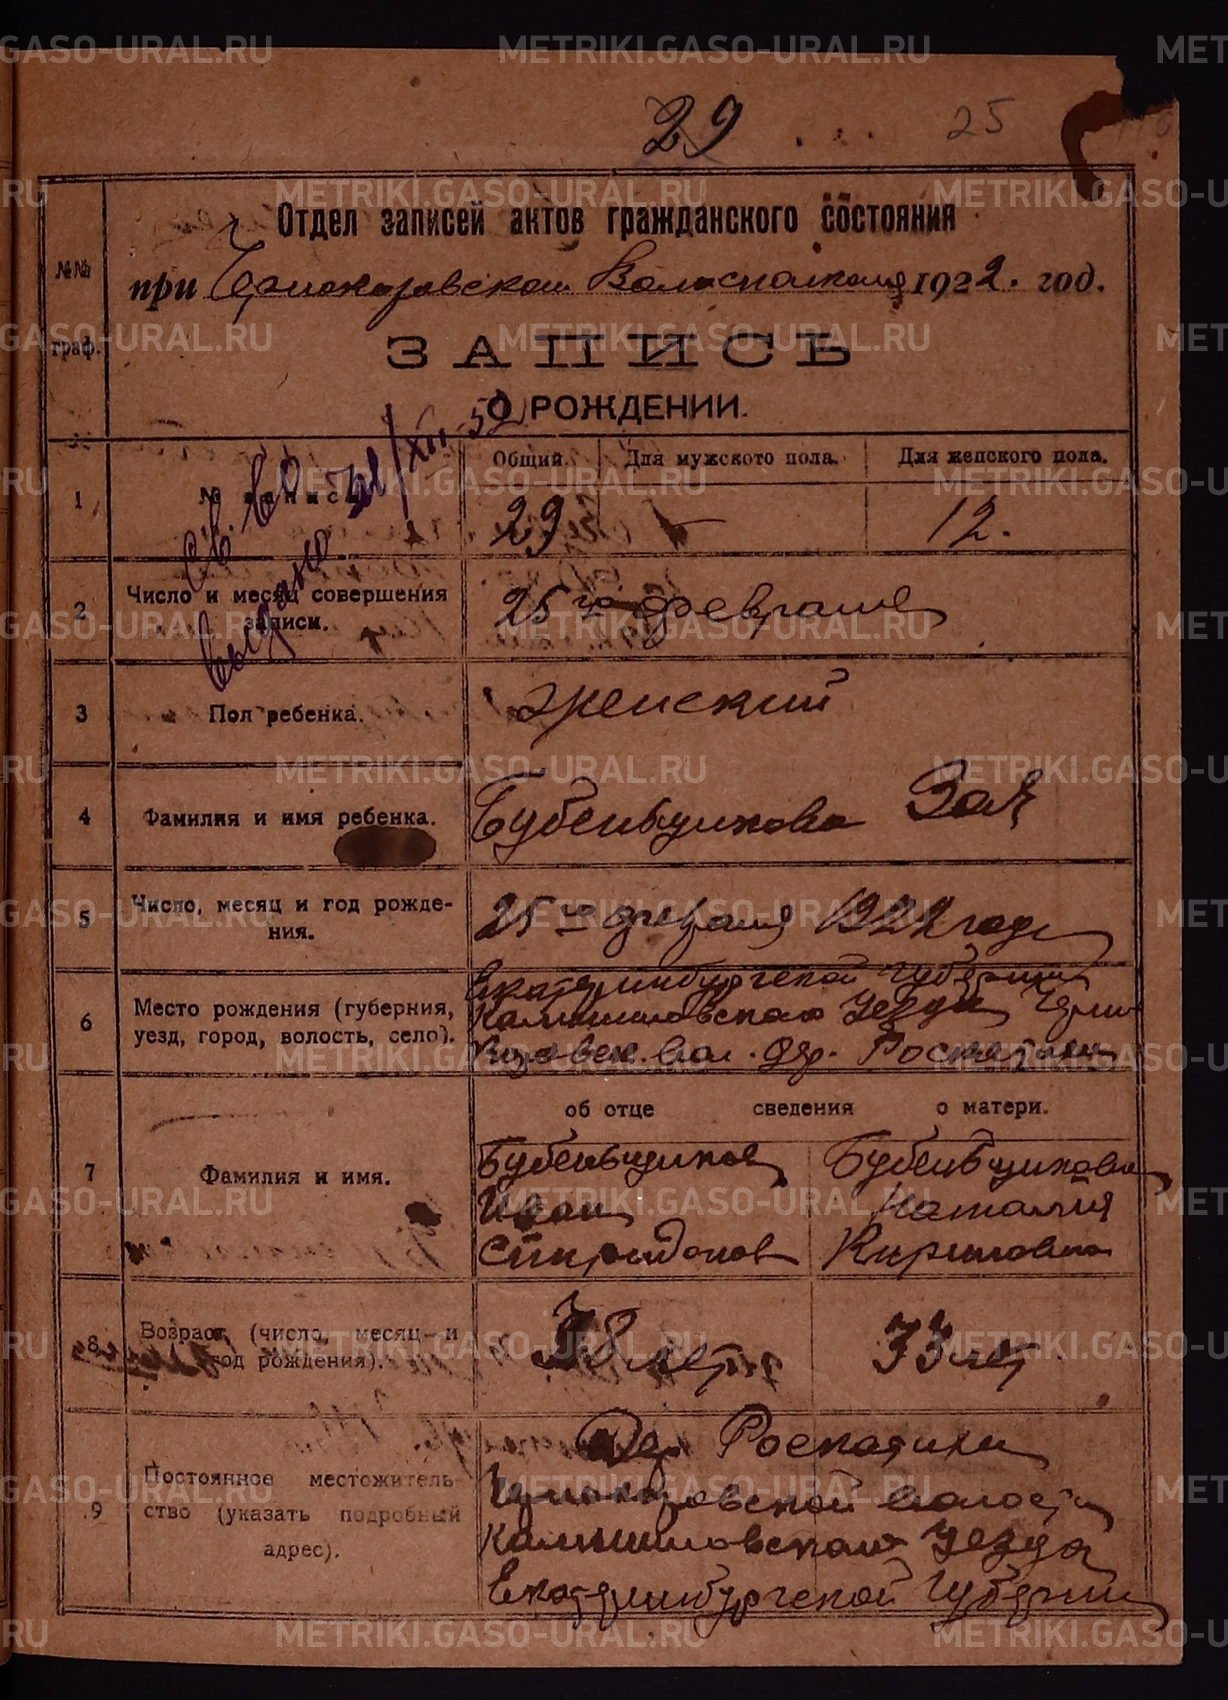 29
25
Отдел записей актов гражданского состояния
при Черноказовском Волисполкоме 1922. год.
№№
граф.
ЗАПИСЬ
О РОЖДЕНИИ.
Общий. Для мужского пола. Для женского пола.
1 № записи 29 — 12.
Выдано
2 Число и месяц совершения 25го февраля
записи.
3 Пол ребенка. женский
4 Фамилия и имя ребенка. Бубенщикова Зоя
5 Число, месяц и год рожде- 25го февраля 1922 года
ния.
Екатеринбургской губернии
6 Место рождения (губерния, Камышловского уезда Черно
уезд, город, волость, село). казовск. вол. дер.
об отце сведения о матери.
Бубеньщиков Бубеньщикова
7 Фамилия и имя. Иван Наталия
Спиридонов Кириловна
8 Возраст, (число, месяц и 38 лет 33 лет
год рождения).
Дер.
9 Постоянное местожитель- Черноказовской волости
ство (указать подробный Камышловского уезда
адрес). Екатеринбургской губернии
METRIKI.GASO-URAL.RU